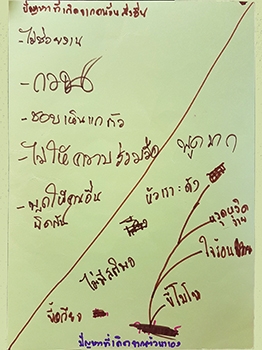 ปัญหาที่เกิดจากคนอื่น
-ไม่ช่วยงาน
-กวน
-ชอบเห็นแก่ตัว
-ไม่ให้ความร่วมมือ
-พูดให้คนอื่น
ผิดกัน
พูดมาก
หัวเราะดัง
หงุดหงิด
ง่าย
ใจร้อน
ขี้โมโห
ไม่มีสติ
ขี้เกียจ
ปัญหาที่เกิดจากตัวเราเอง